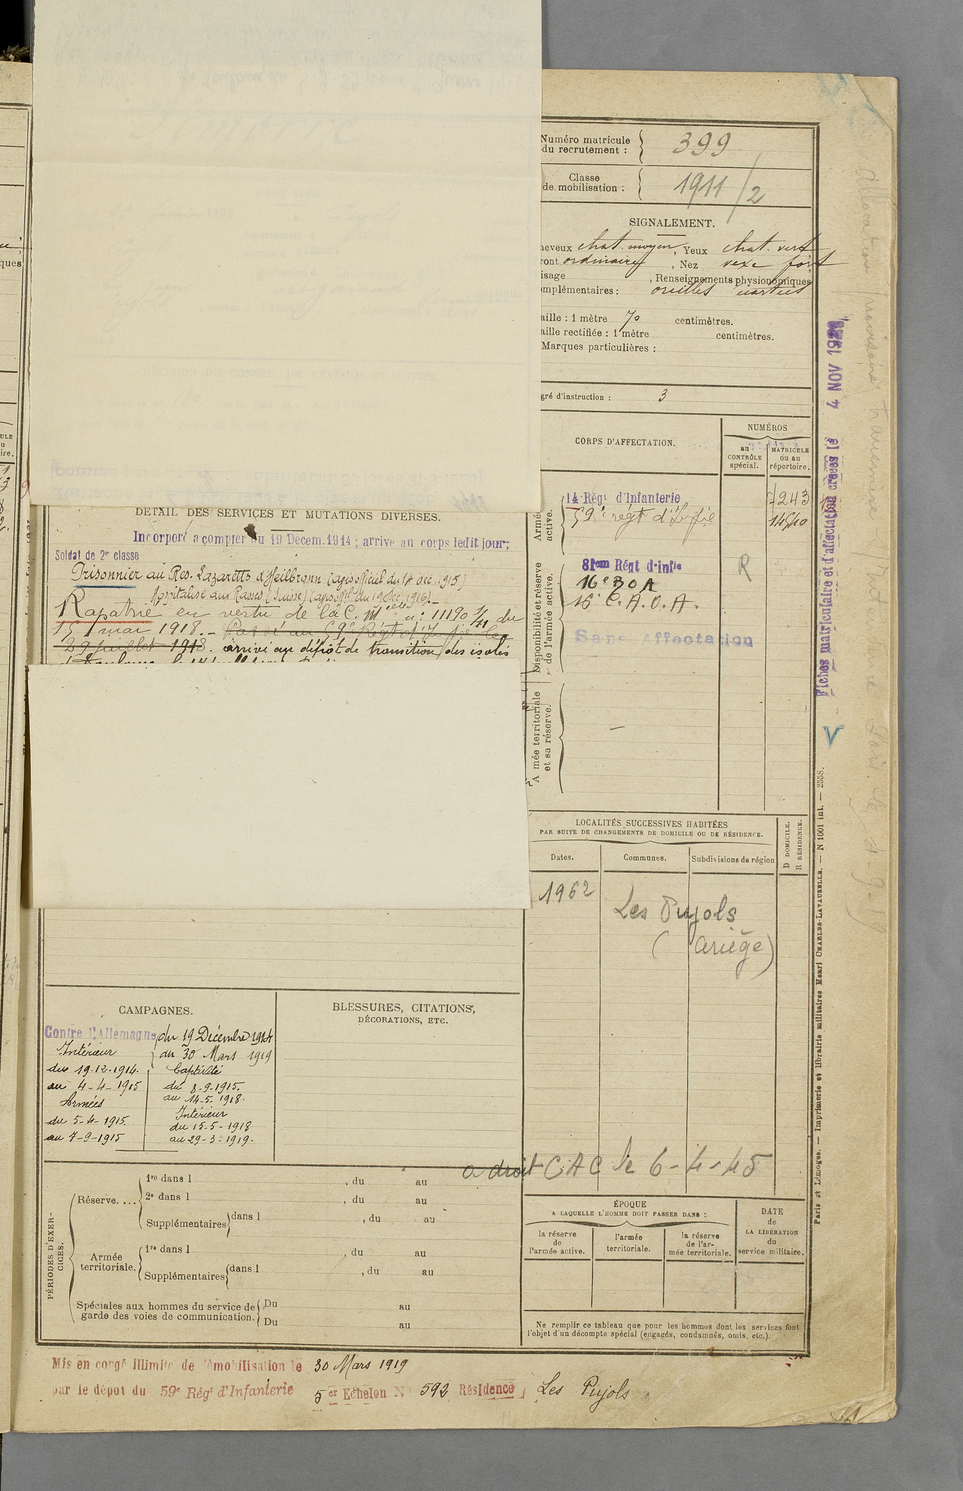 Numéro matricule
du recrutement :
399
Classe
de mobilisation :
1911/2
SIGNALEMENT.
heveux chat. moyen, Yeux chat. vert
ront ordinaire, Nez vexe fort
isage , Renseignements physionomiques
omplémentaires : oreilles
aille : 1 mètre 70 centimètres.
aille rectifiée : 1 mètre centimètres.
Marques particulières :
gré d'instruction : 3
CORPS D'AFFECTATION.
NUMÉROS
au
CONTRÔLE
spécial.
MATRICULE
ou au
répertoire.
Armée
active.
14 Régt d'Infanterie 7243
59e regt d'Inf ie
Disponibilité et réserve
de l'armée active.
81em Régt d'Inftie R
16e 30 A
16e C. A. O. A.
Sans Affectation
A mée territoriale
et sa réserve.
Fiches matriculaire et d'affectation créées le 4 NOV
DÉTAIL DES SERVICES ET MUTATIONS DIVERSES.
Incorporé à compter du 19 Décem. 1914 ; arrivé au corps ledit jour;
Soldat de 2e classe
Prisonnier au Res. Lazarette d'Heilbronn (avis officiel du 17 déc. 1915)
Hospitalisé aux Rasses (Suisse) (avis offel du 19 Déc. 1916).-
Rapatrié en vertu de la C. Melle n° : 11190 1/11 du
15 mai 1918.- Passé au 59e Régt d'Inf ie le
29 juillet 1918. arrivé au dépôt de transition des isolés
LOCALITÉS SUCCESSIVES HABITÉES
PAR SUITE DE CHANGEMENTS DE DOMICILE OU DE RÉSIDENCE.
Dates.
Communes.
Subdivisions de région
D DOMICILE.
R RÉSIDENCE.
1962 Les Pujols
(Ariège)
CAMPAGNES.
Contre l'Allemagne du 19 Décembre 1914
au 30 Mars 1919
Intérieur
du 19-12-1914
au 4-4-1915
Armées
du 5-4-1915
au 7-9-1915
Captivité
du 8-9-1915.
au 14.5.1918.
Intérieur
du 15-5-1918
au 29-3-1919.
BLESSURES, CITATIONS,
DÉCORATIONS, ETC.
a droit CAC le 6-4-45
PÉRIODES D'EXER-
CICES.
Réserve. ...
1re dans l , du au
2e dans l , du au
Supplémentaires dans l , du au
Armée
territoriale.
1re dans l , du au
Supplémentaires dans l , du au
Spéciales aux hommes du service de
garde des voies de communication.
Du au
Du au
ÉPOQUE
A LAQUELLE L'HOMME DOIT PASSER DANS :
la réserve
de
l'armée active.
l'armée
territoriale.
la réserve
de l'ar-
mée territoriale.
DATE
de
LA LIBÉRATION
du
service militaire.
Ne remplir ce tableau que pour les hommes dont les services font
l'objet d'un décompte spécial (engagés, condamnés, omis, etc.).
Paris et Limoges. — Imprimerie et librairie militaires Henri CHARLES-LAVAUZELLE. — N 1001 int. — 2558.
Mis en congé illimité de démobilisation le 30 Mars 1919
par le dépôt du 59e Régt d'Infanterie 5 er Echelon N° 592 Résidence, Les Pujols